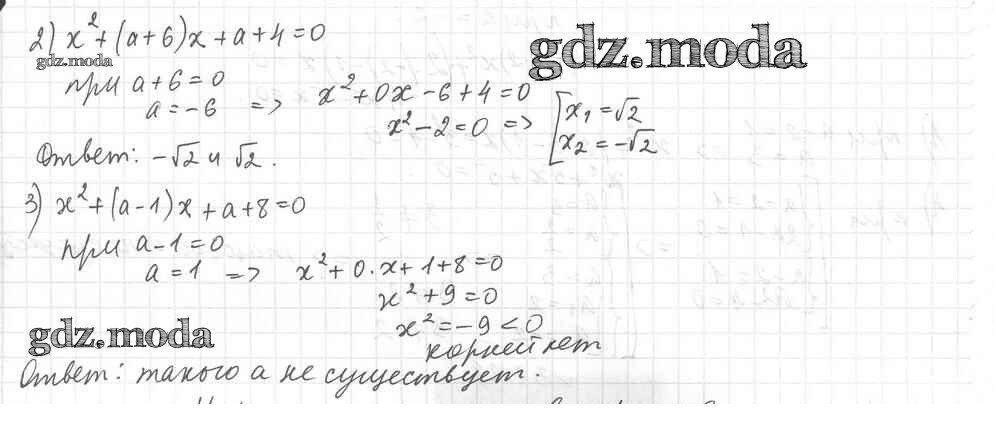 2) x² + (a + 6)x + a + 4 = 0
gdz.moda
gdz.moda
при a + 6 = 0
a = -6 => x² + 0x - 6 + 4 = 0
x² - 2 = 0 => [x₁ = √2
x₂ = -√2
Ответ: -√2 и √2.
3) x² + (a - 1)x + a + 8 = 0
при a - 1 = 0
a = 1 => x² + 0·x + 1 + 8 = 0
x² + 9 = 0
x² = -9 < 0
gdz.moda
корней нет
Ответ: такого a не существует.